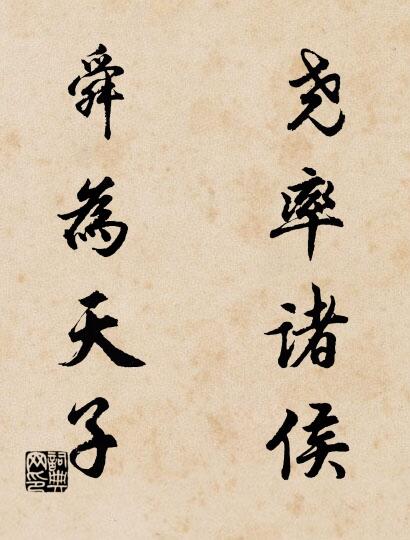 尧率诸侯
舜為天子
詞典網印